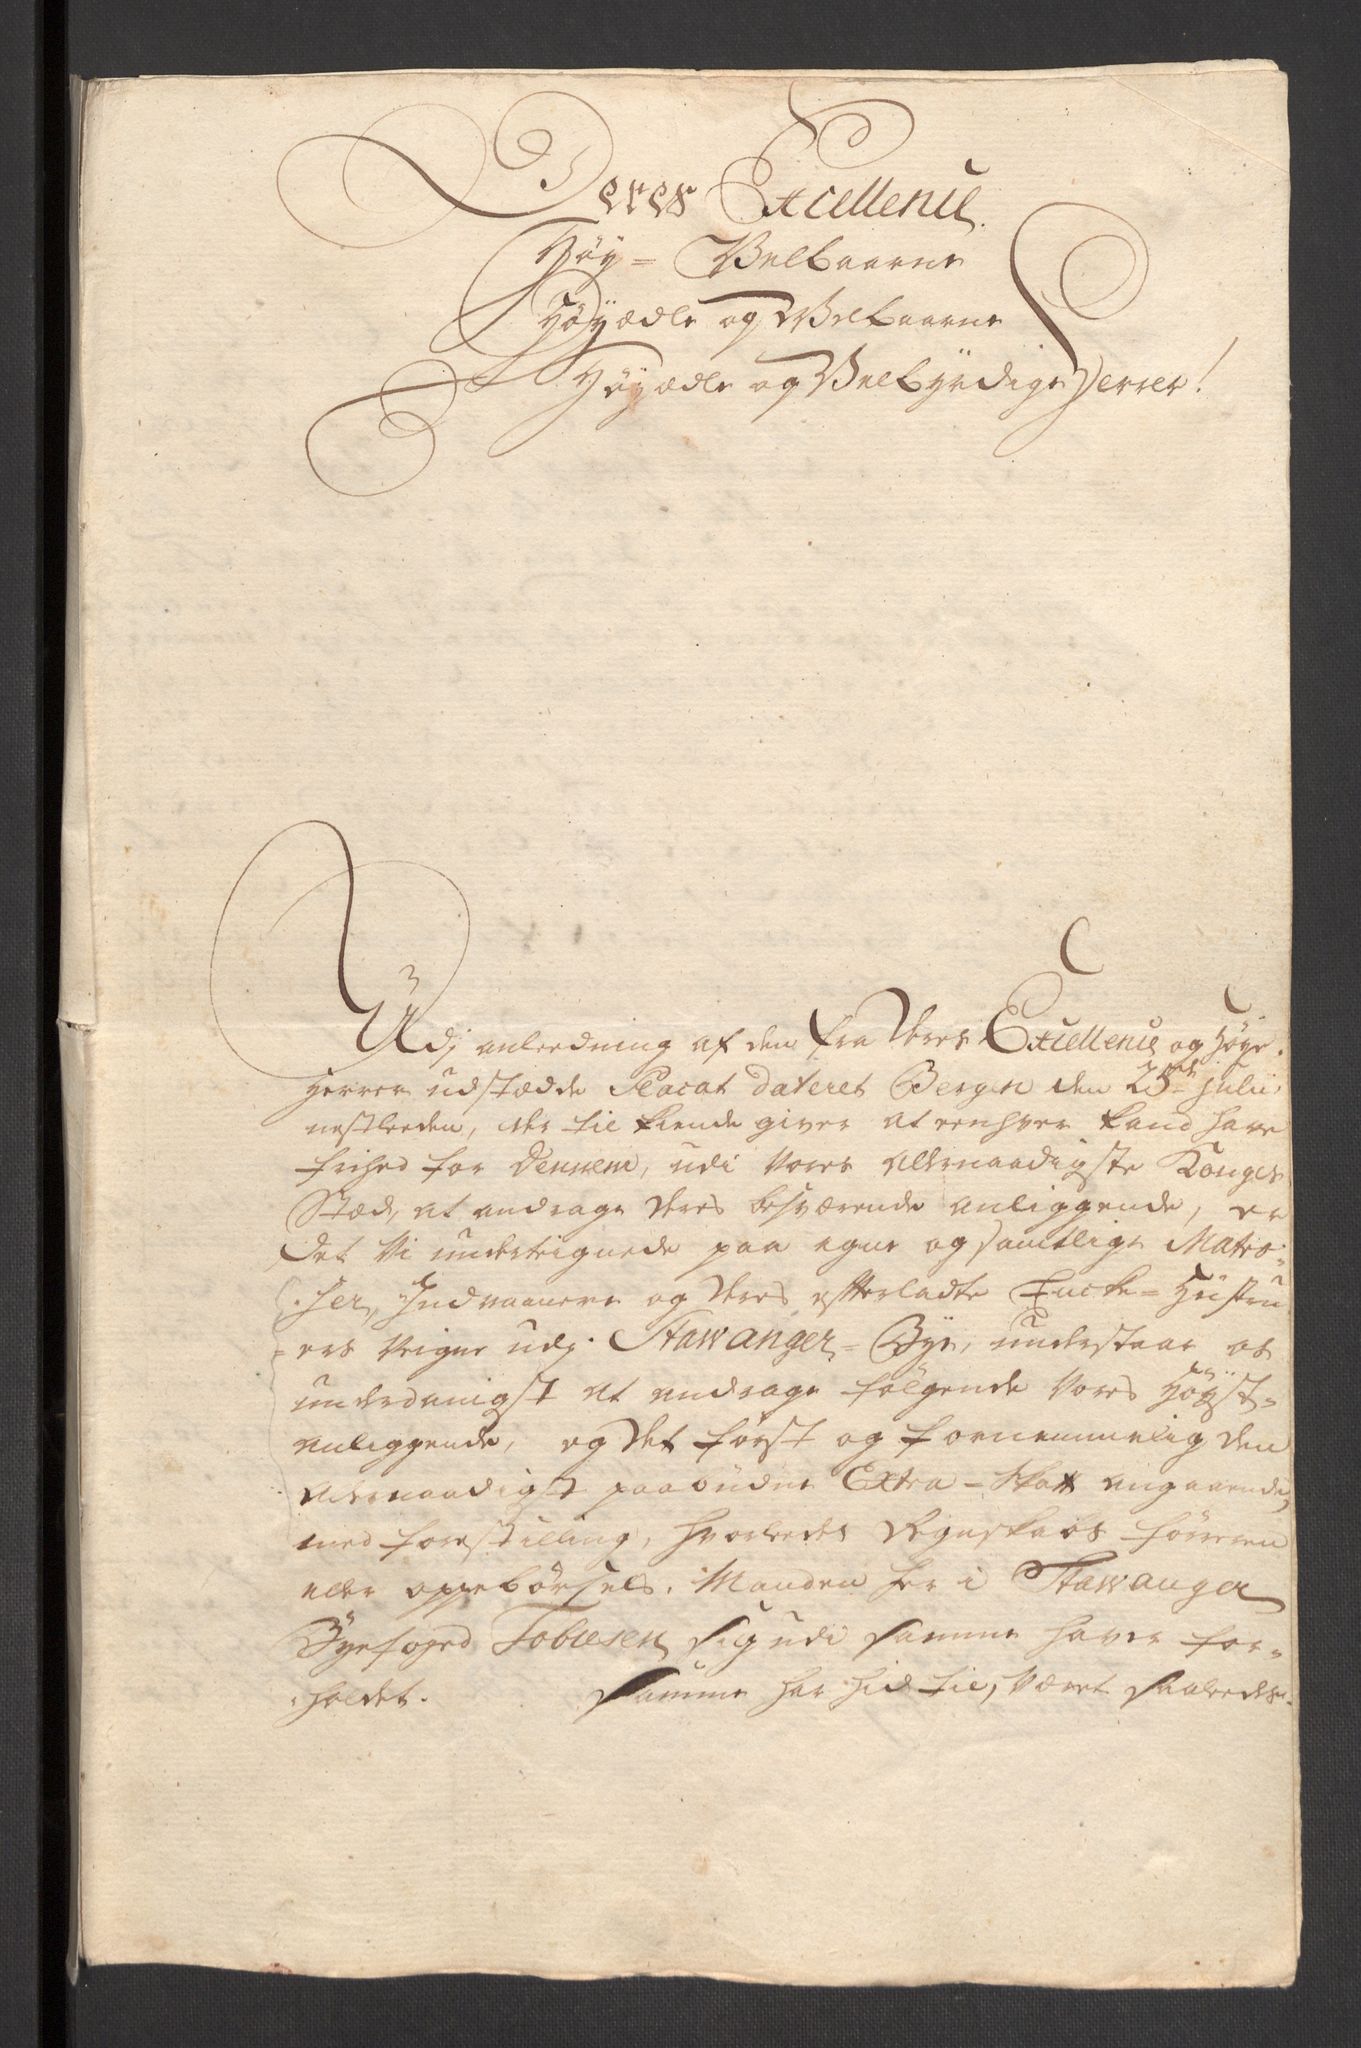 Deres Excellence
Høy= Velbaarne
Høyædle og Velbaarne
Høyædle og Velbyrdige Herrer!
Udj anleedning af den fra Deres Excellence og Høye
Herrer udstædde Placat dateret Bergen den 25de Julii
nestleeden, der til kiende giver at eenhver kand have
frihed for Dennem, udi Vores allernaadigste Konges
Stæd, at andrage deres besværende anliggende, er
det Vi undertegnede paa egne og samtlige Matro-
ser, Indvaanere og deres efterladte Encke= Hustru
ers Veigne udj Stawanger= Bye, understaar os
underdanigst at andrage følgende Vores Høyst-
anliggende, og det først og fornemmelig den
allernaadigst paabudne Extra-Skatt angaaende,
med forestilling, hvorledes Regnskabs føreren
eller oppebørsels Manden her i Stawanger
Byefoged Tobiesen sig udi samme haver for-
holdet. Samme har hid til, været saaledes